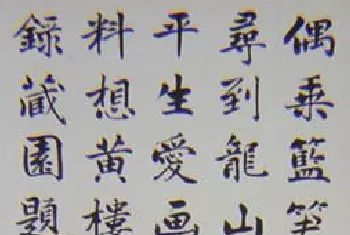 偶乘籃筆
尋到龍山
平生愛画
料想黃樓
錄藏園題